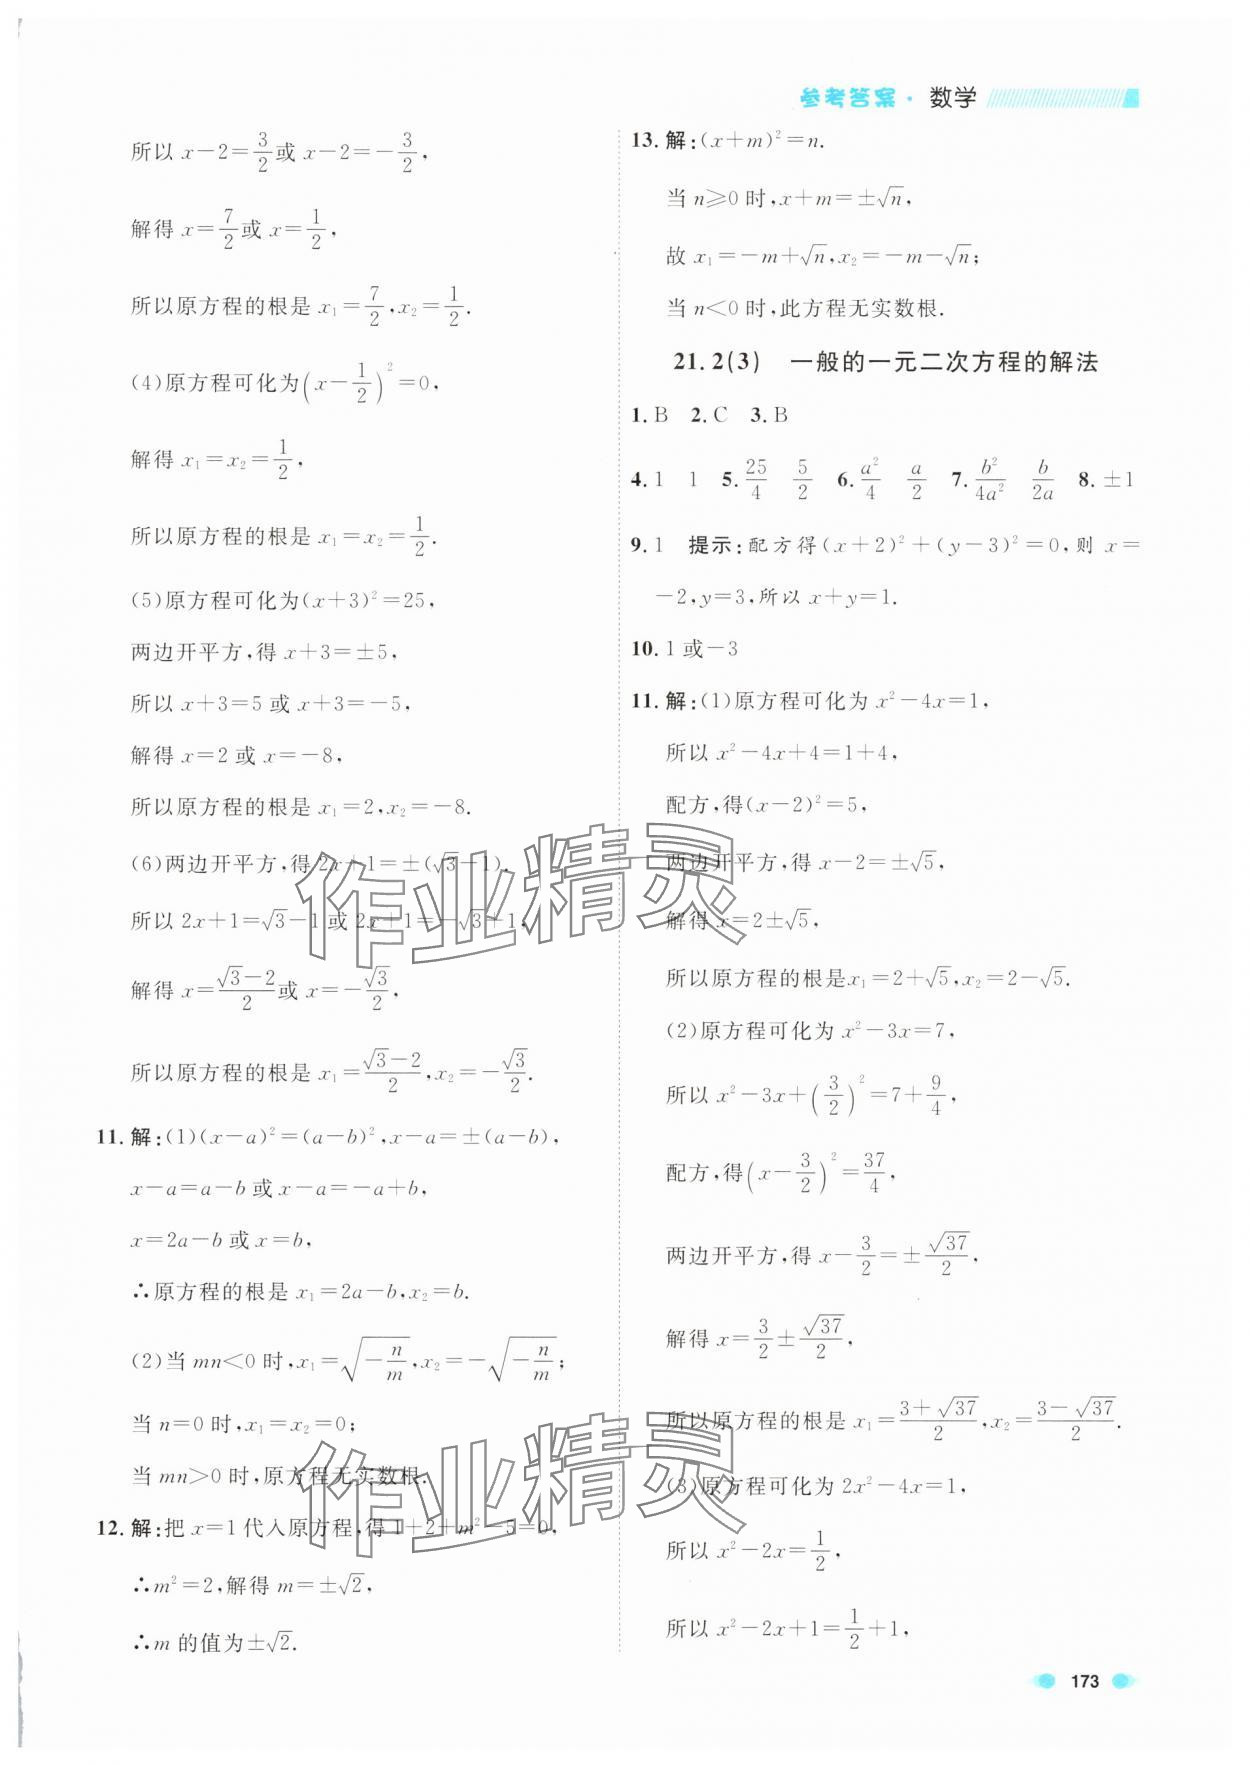 参考答案·数学
所以 x－2＝3/2 或 x－2＝－3/2,
解得 x＝7/2 或 x＝1/2,
所以原方程的根是 x₁＝7/2,x₂＝1/2.
(4)原方程可化为(x－1/2)²＝0,
解得 x₁＝x₂＝1/2,
所以原方程的根是 x₁＝x₂＝1/2.
(5)原方程可化为(x＋3)²＝25,
两边开平方,得 x＋3＝±5,
所以 x＋3＝5 或 x＋3＝－5,
解得 x＝2 或 x＝－8,
所以原方程的根是 x₁＝2,x₂＝－8.
(6)两边开平方,得 2x＋1＝±(√3－1).
所以 2x＋1＝√3－1 或 2x＋1＝－√3＋1,
解得 x＝(√3－2)/2 或 x＝－√3/2,
所以原方程的根是 x₁＝(√3－2)/2,x₂＝－√3/2.
11. 解:(1)(x－a)²＝(a－b)²,x－a＝±(a－b),
x－a＝a－b 或 x－a＝－a＋b,
x＝2a－b 或 x＝b,
∴原方程的根是 x₁＝2a－b,x₂＝b.
(2)当 mn＜0 时,x₁＝√(－n/m),x₂＝－√(－n/m);
当 n＝0 时,x₁＝x₂＝0;
当 mn＞0 时,原方程无实数根.
12. 解:把 x＝1 代入原方程,得 1＋2＋m²－5＝0,
∴m²＝2,解得 m＝±√2,
∴m 的值为±√2.
13. 解:(x＋m)²＝n.
当 n≥0 时,x＋m＝±√n,
故 x₁＝－m＋√n,x₂＝－m－√n;
当 n＜0 时,此方程无实数根.
21.2(3) 一般的一元二次方程的解法
1. B 2. C 3. B
4. 1 1 5. 25/4 5/2 6. a²/4 a/2 7. b²/4a² b/2a 8. ±1
9. 1 提示:配方得(x＋2)²＋(y－3)²＝0,则 x＝
－2,y＝3,所以 x＋y＝1.
10. 1 或－3
11. 解:(1)原方程可化为 x²－4x＝1,
所以 x²－4x＋4＝1＋4,
配方,得(x－2)²＝5,
两边开平方,得 x－2＝±√5,
解得 x＝2±√5,
所以原方程的根是x₁＝2＋√5,x₂＝2－√5.
(2)原方程可化为 x²－3x＝7,
所以 x²－3x＋(3/2)²＝7＋9/4,
配方,得(x－3/2)²＝37/4,
两边开平方,得 x－3/2＝±√37/2,
解得 x＝3/2±√37/2,
所以原方程的根是 x₁＝(3＋√37)/2,x₂＝(3－√37)/2.
(3)原方程可化为 2x²－4x＝1,
所以 x²－2x＝1/2,
所以 x²－2x＋1＝1/2＋1,
173
作业精灵
作业精灵